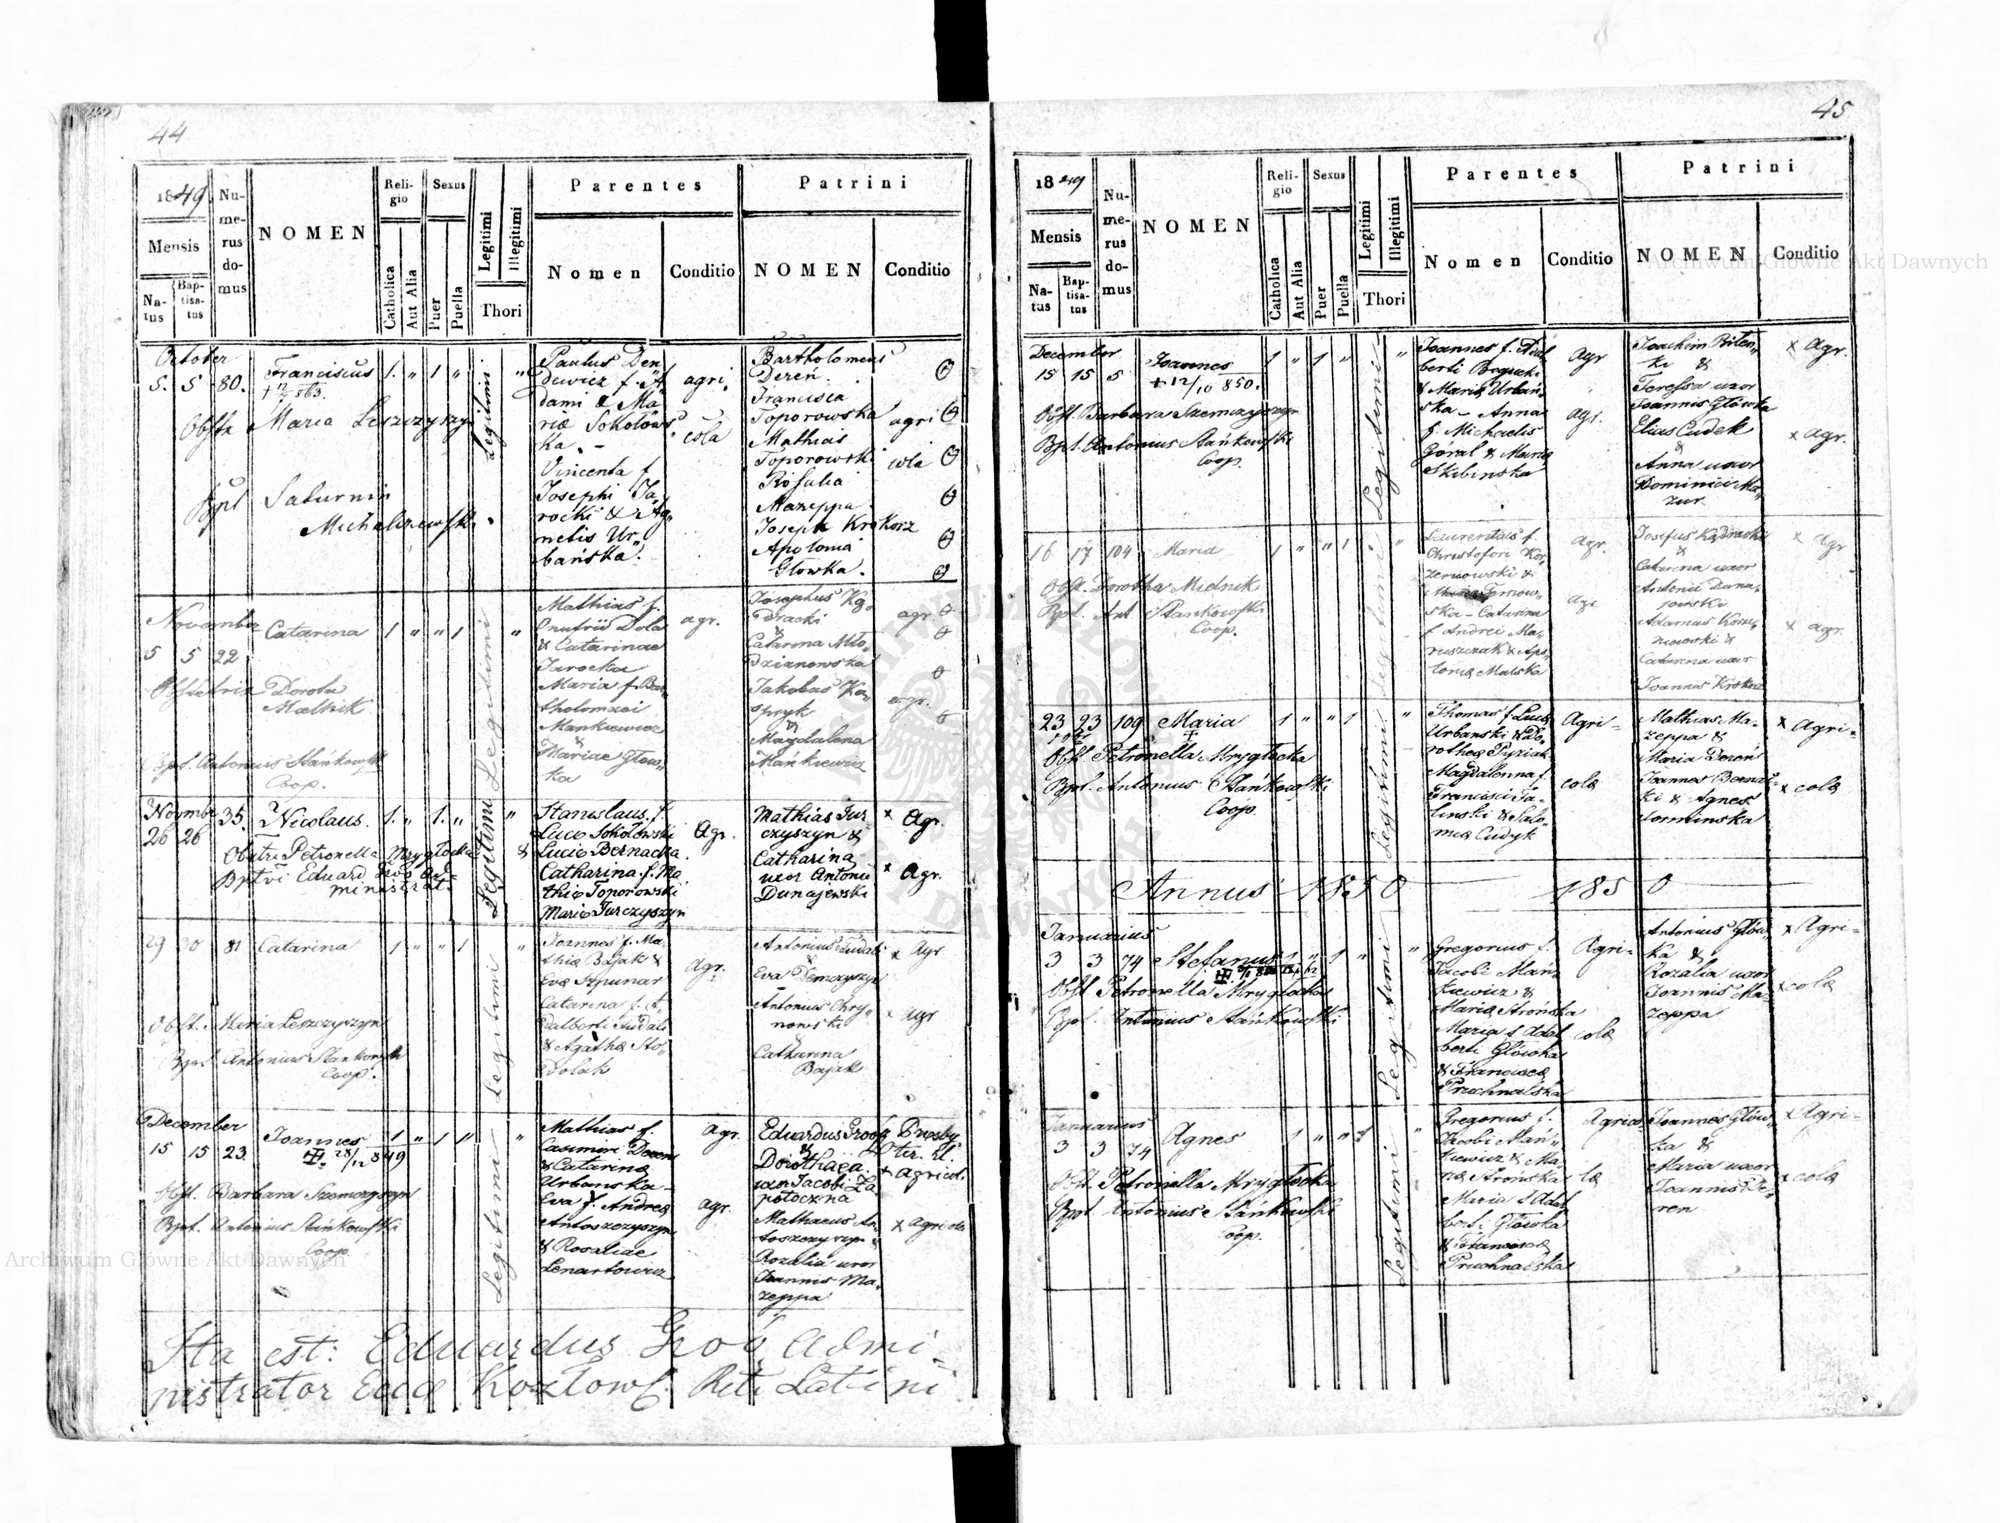 44
1849.
Mensis
Na-
tus
Bap-
tisa-
tus
Nu-
me-
rus
do-
mus
NOMEN
Reli-
gio
Catholica
Aut Alia
Sexus
Puer
Puella
Legitimi
Illegitimi
Thori
Parentes
Nomen
Conditio
Patrini
NOMEN
Conditio
October
5. 5 80. Franciscus 1. " 1 "
Obstx Maria Leszczyszyn
Bpt Saturnin
Michalszewski
Legitimi
Paulus Den
dewicz f. A
dami & Ma
riæ Sokołows
ka. -
Vincenta f.
Josephi Ja
rocki & Ag
netis Ur
bańska.
agri
cola
Bartholomeus
Dereń.
Francisca
Toporowska
Mathias
Toporowski
Rosalia
Mazeppa.
Joseph Krokosz
Apolonia
Głowka.
agri
cola
November
5 5 22 Catarina 1 " " 1 "
Obstetrix Dorota
Mielnik
Bpt. Antonius Stańkowski
Coop.
Legitimi
Mathias f.
Onufrii Dola
& Catarinae
Jarocka
Maria f. Bar
tholomaei
Mankiewicz
&
Mariae Głow-
ka
agr.
Josephus Kę-
dracki
&
Catarina Mło-
dzianowska
Jakobus Ka-
&
Magdalena
Mankiewicz
agr.
agr.
Novmber
26 26 35. Nicolaus. 1. " 1. " "
Obstri Petronella Mrygłocka
Bptvi Eduard Groo Ad-
ministrat.
Legitimi
Stanislaus. f.
Lucæ Sokołowski
& Lucie Bernacka.
Catharina. f. Ma
thiæ Toporowski
Mariæ Jurczyszyn
Agr.
Mathias Jur
czyszyn &
Catharina
uxor Antonii
Dunajewski
x Agr.
x Agr.
29 30 81 Catarina 1 " " 1 "
Obst. Maria Leszczyszyn
Bpt. Antonius Stańkowski
Coop.
Legitimi
Joannes f. Ma-
thiæ Bajak &
Evæ Szpunar
Catarina f. A-
dalberti Dudak
& Agathæ Sto-
dolak
Agr.
Antonius Dudak
Eva Demczyszyn
Antonius Chry-
nowski
&
Catharina
Bajak
x Agr
x Agr
December
15 15 23. Joannes 1 " 1 " "
28/12 849
Obst. Barbara Szemczyszyn
Bpt. Antonius Stańkowski
Coop.
Legitimi
Mathias f.
Casimiri Deren
& Catarinæ
Urbanska -
Eva f. Andreæ
Antoszczyszyn
& Rosaliae
Lenartowicz
agr.
agr.
Eduardus Groo
&
Dorothaea.
uxor Jacobi Za
potoczna
Mathaeus An
toszczyszyn &
Rozalia uxor
Joannis Ma-
zeppa
Presby-
ter. rl.
x agricol.
x agricola
Ita est: Eduardus Groo Admi-
nistrator Eccæ Kozłowſ. Riti Latini
45
1849
Mensis
Na-
tus
Bap-
tisa-
tus
Nu-
me-
rus
do-
mus
NOMEN
Reli-
gio
Catholica
Aut Alia
Sexus
Puer
Puella
Legitimi
Illegitimi
Thori
Parentes
Nomen
Conditio
Patrini
NOMEN
Conditio
December
15 15 5 Joannes 1 " 1 " "
+ 12/10 850.
Obst. Barbara Szemczyszyn
Bpt. Antonius Stańkowski
Coop.
Legitimi
Joannes f. Adal
berti Bogucki
& Mariæ Urbań-
ska - Anna
f. Michaelis
Goral & Mariæ
Skibinska
Agr
Agr.
Joachim Biten-
ki &
Teressa uxor
Joannis Głowka
Elias Cudek
&
Anna uxor
Dominici Ma-
zur.
x Agr.
x Agr.
16 17 104 Maria 1 " " 1 "
Obst. Dorotha Mielnik
Bpt. Ant Stańkowski
Coop.
Legitimi
Laurentius f.
Christofori Kor-
zeniowski &
Ternow-
ska - Catarina
f. Andrei Ma-
ruszczak & Apo-
loniæ Malska
Agr.
Agr
Josefus Kędracki
&
Catarina uxor
Antonii Duna-
jewski
Adamus Korze-
niowski &
Catarina uxor
Joannis Krokosz
x Agr
x Agr.
23 23 109 Maria 1 " " 1 "
Obst Petronella Mrygłocka
Bpt. Antonius Stańkowski
Coop.
Legitimi
Thomas f. Lucæ
Urbanski & Do-
rotheæ Pyziak
Magdalenna f.
Francisci Ja-
linski & Salo-
meæ Cudyk
Agri-
colæ
Mathias Ma-
zeppa &
Maria Dereń
Joannes Bernac-
ki & Agnes
Sorminska
x Agri-
x colæ
Annus 1850 1850
Januarius
3 3 74 Stefanus 1 " 1 " "
Obst Petronella Mrygłocka
Bpt. Antonius Stańkowski
Legitimi
Gregorius f.
Jacobi Mań-
kiewicz &
Mariæ Strońska
Maria f Adal
berti Głowka
& Franciscæ
Pruchnalska
Agri-
colæ
Antonius Głow-
ka &
Rozalia uxor
Joannis Ma-
zeppa
x Agri-
x colæ
Januarius
3 3 74 Agnes 1 " " 1 "
Obst. Petronella Mrygłocka
Bpt Antonius Stańkowski
Coop.
Legitimi
Gregorius f.
Jacobi Mań-
kiewicz & Ma-
riæ Strońska
Maria f Adal
berti Głowka
& Franciscæ
Pruchnalska
Agrico
læ
Joannes Głow-
ka &
Maria uxor
Joannis De-
ren
x Agri-
x colæ
Archiwum Główne Akt Dawnych
Archiwum Główne Akt Dawnych